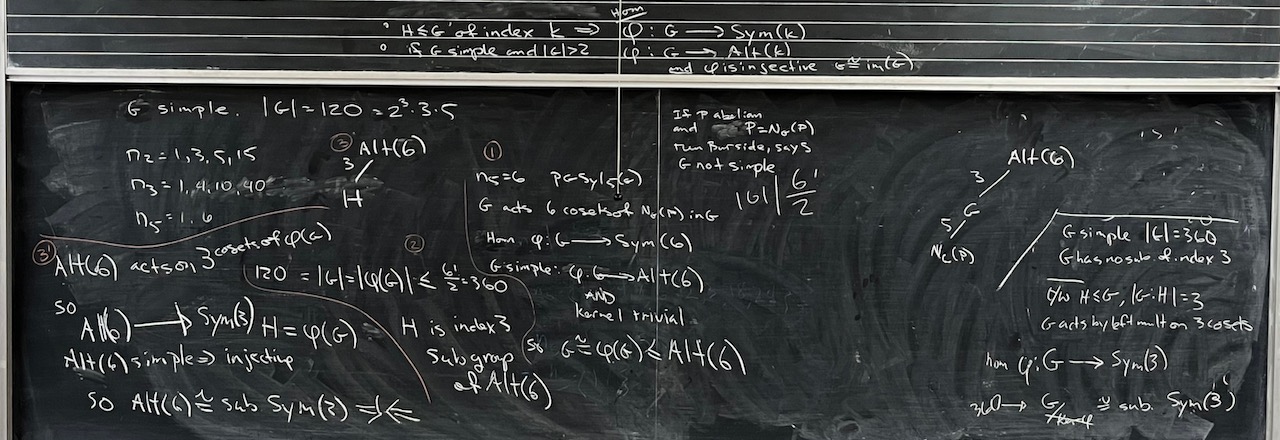 Hom
• H ≤ G of index k ⇒ φ: G → Sym(k)
• if G simple and |G|>2 φ: G → Alt(k)
and φ is injective G ≅ im(G)
G simple. |G| = 120 = 2³·3·5
n₂ = 1, 3, 5, 15
n₃ = 1, 4, 10, 40
n₅ = 1, 6
③ Alt(6)
3
H
③' Alt(6) acts on 3 cosets of φ(G)
so
Alt(6) → Sym(3)
Alt(6) simple ⇒ injective
so Alt(6) ≅ sub Sym(3) ⇒⇐
②
120 = |G| = |φ(G)| ≤ 6!/2 = 360
H = φ(G)
H is index 3
subgroup
of Alt(6)
①
n₅=6 P∈Syl₅(G)
G acts 6 cosets of N_G(P) in G
Hom. φ: G → Sym(6)
G simple: φ: G → Alt(6)
AND
kernel trivial
so G ≅ φ(G) ≤ Alt(6)
If P abelian
and P = N_G(P)
then Burnside, says
G not simple
|G| | 6!/2
Alt(6)
3
G
5
N_G(P)
G simple |G|=360
G has no sub. of index 3
o/w H ≤ G, |G:H|=3
G acts by left mult on 3 cosets
hom φ: G → Sym(3)
360 → G/ker φ ≅ sub. Sym(3)
6